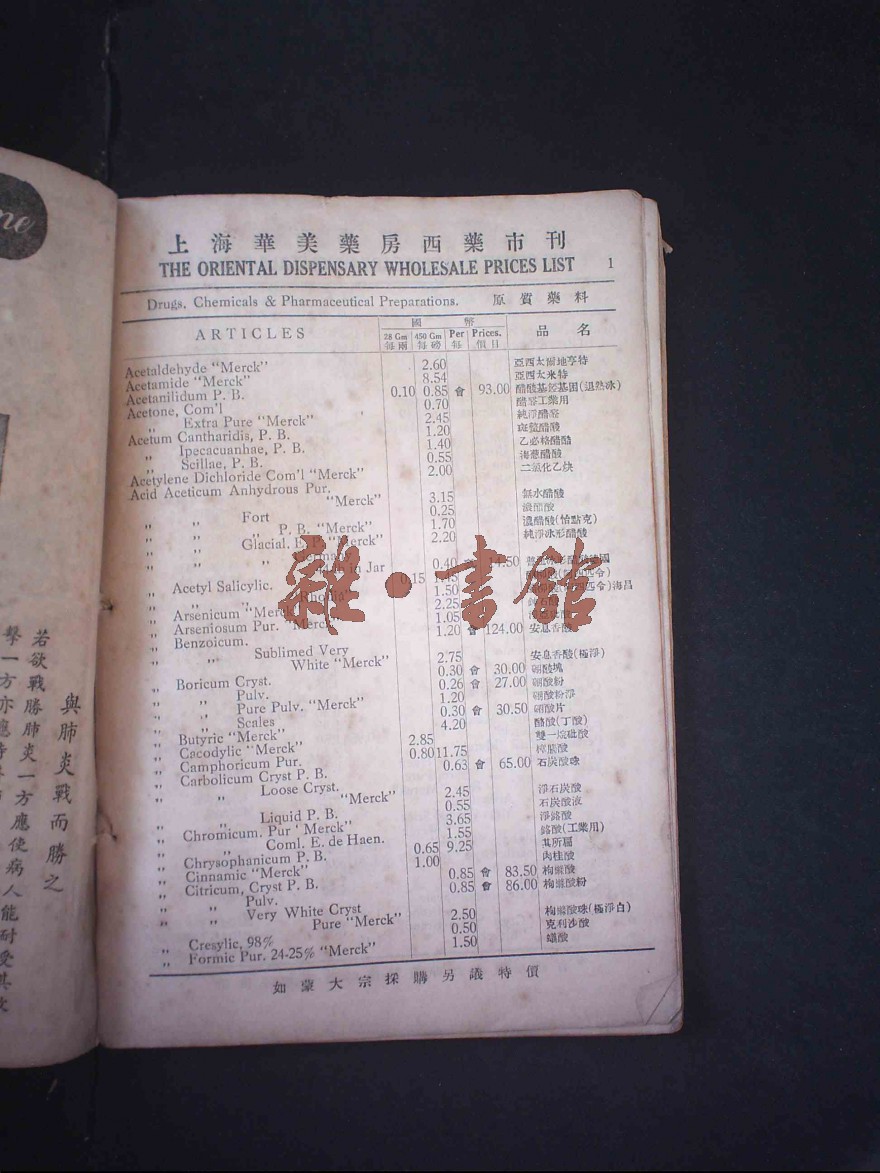 上海華美藥房西藥市刊
THE ORIENTAL DISPENSARY WHOLESALE PRICES LIST 1
Drugs, Chemicals & Pharmaceutical Preparations. 原質藥料
ARTICLES 國幣 品名
28 Gm 每兩 450 Gm 每磅 Per 每 Prices. 價目
Acetaldehyde "Merck" 2.60 亞西太爾地亨特
Acetamide "Merck" 8.54 亞西太米特
Acetanilidum P. B. 0.10 0.85 會 93.00 醋酸基
Acetone, Com'l 0.70 工業用
" Extra Pure "Merck" 2.45 純淨
Acetum Cantharidis, P. B. 1.20 斑蝥醋酸
" Ipecacuanhae, P. B. 1.40
" Scillae, P. B. 0.55 海葱醋酸
Acetylene Dichloride Com'l "Merck" 2.00 二氯化乙炔
Acid Aceticum Anhydrous Pur,
"Merck" 3.15 無水醋酸
" " Fort 0.25
" " " P. B. "Merck" 1.70 濃醋酸
" " Glacial. E. P. "Merck" 2.20 純淨冰形醋酸
" " " 0.40
in Jar
" Acetyl Salicylic. 0.15
" " " 1.50 海昌
" Arsenicum "Merck" 2.25
" Arseniosum Pur. "Merck" 1.05
" Benzoicum. 1.20 會 124.00 安息香酸
" " Sublimed Very
White "Merck" 2.75 安息香酸(極淨)
" Boricum Cryst. 0.30 會 30.00 硼酸塊
" " Pulv. 0.26 會 27.00 硼酸粉
" " Pure Pulv. "Merck" 1.20 硼酸粉淨
" " Scales 0.30 會 30.50 硼酸片
" Butyric "Merck" 4.20 酪酸(丁酸)
" Cacodylic "Merck" 2.85
" Camphoricum Pur. 0.80 11.75 樟腦酸
" Carbolicum Cryst P. B. 0.63 會 65.00 石炭酸
" " Loose Cryst.
"Merck" 2.45 淨石炭酸
" " Liquid P. B. 0.55 石炭酸液
" Chromicum. Pur "Merck" 3.65 淨鉻酸
" " Coml. E. de Haen. 1.55 鉻酸(工業用)
" Chrysophanicum P. B. 0.65 9.25
" Cinnamic "Merck" 1.00 肉桂酸
" Citricum, Cryst P. B. 0.85 會 83.50 枸櫞酸
" " Pulv. 0.85 會 86.00 枸櫞酸粉
" " Very White Cryst
Pure "Merck" 2.50 枸櫞酸珠(極淨白)
" Cresylic, 98% 0.50 克利沙酸
" Formic Pur. 24-25% "Merck" 1.50 蟻酸
如蒙大宗採購另議特價
雜·書館
與肺炎戰而勝之
若欲戰勝肺炎一方應使病人能耐受其